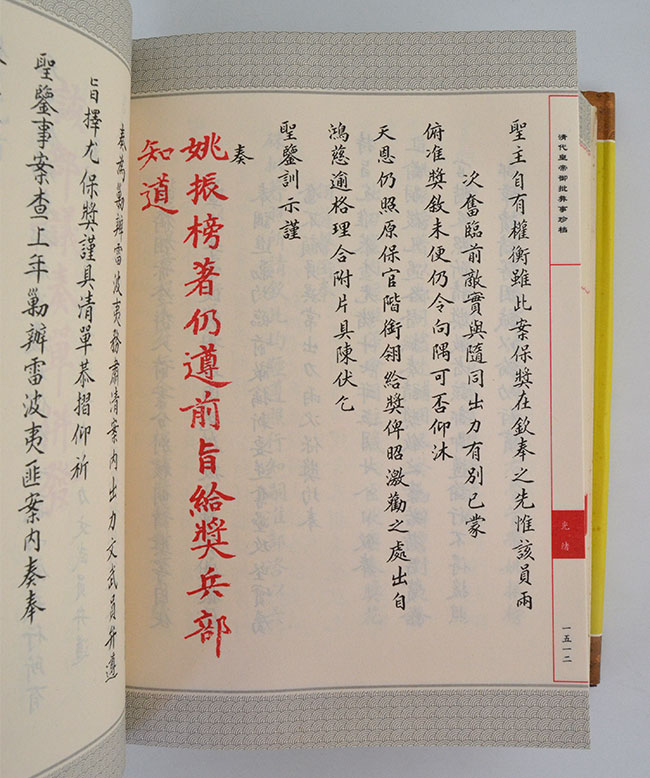 清代皇帝御批彝事珍檔
光緒
一五一二
聖主自有權衡雖此案保獎在欽奉之先惟該員兩
次奮臨前敵實與隨同出力有別已蒙
俯准獎敘未便仍令向隅可否仰沐
天恩仍照原保官階銜翎給獎俾昭激勸之處出自
鴻慈逾格理合附片具陳伏乞
聖鑒訓示謹
奏
姚振榜著仍遵前旨給獎兵部
知道
奏為勦辦雷波夷務肅清案內出力文武員弁遵
旨擇尤保獎謹具清單恭摺仰祈
聖鑒事案查上年勦辦雷波夷匪案內奏奉